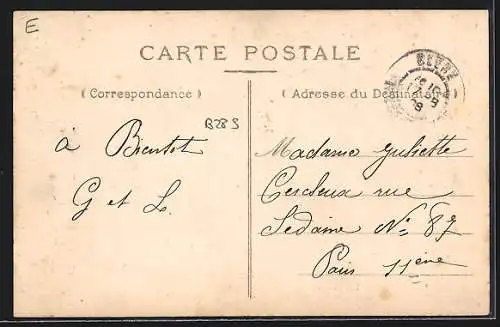 E
CARTE POSTALE
( Correspondance )
( Adresse du Destinataire )
B28 S
à Bientot
G et L.
Madame Juliette
rue
Sedaine No 87
Paris 11ème